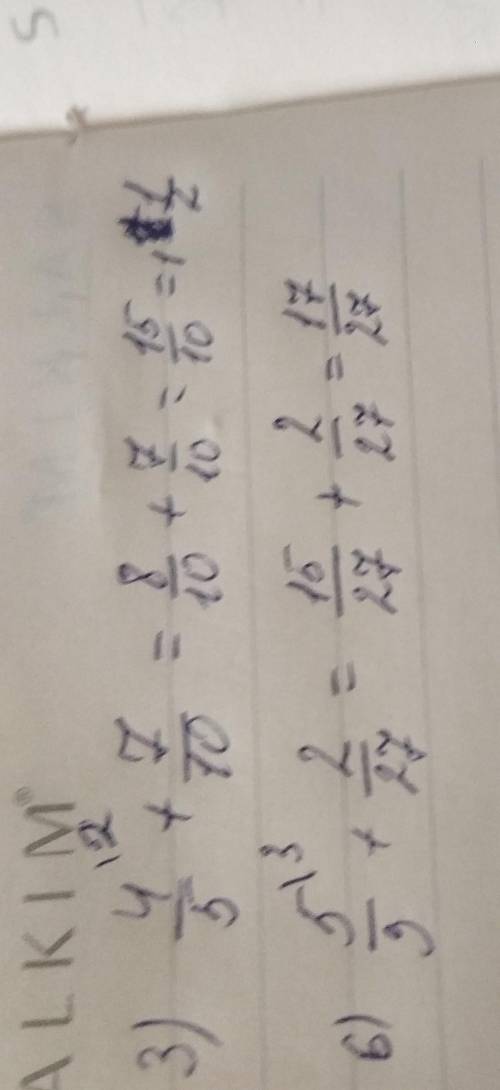 ALKIM®
3) 4/5 \2 + 7/10 = 8/10 + 7/10 = 15/10 = 1 1/2
6) 5/9 \3 + 2/27 = 15/27 + 2/27 = 17/27